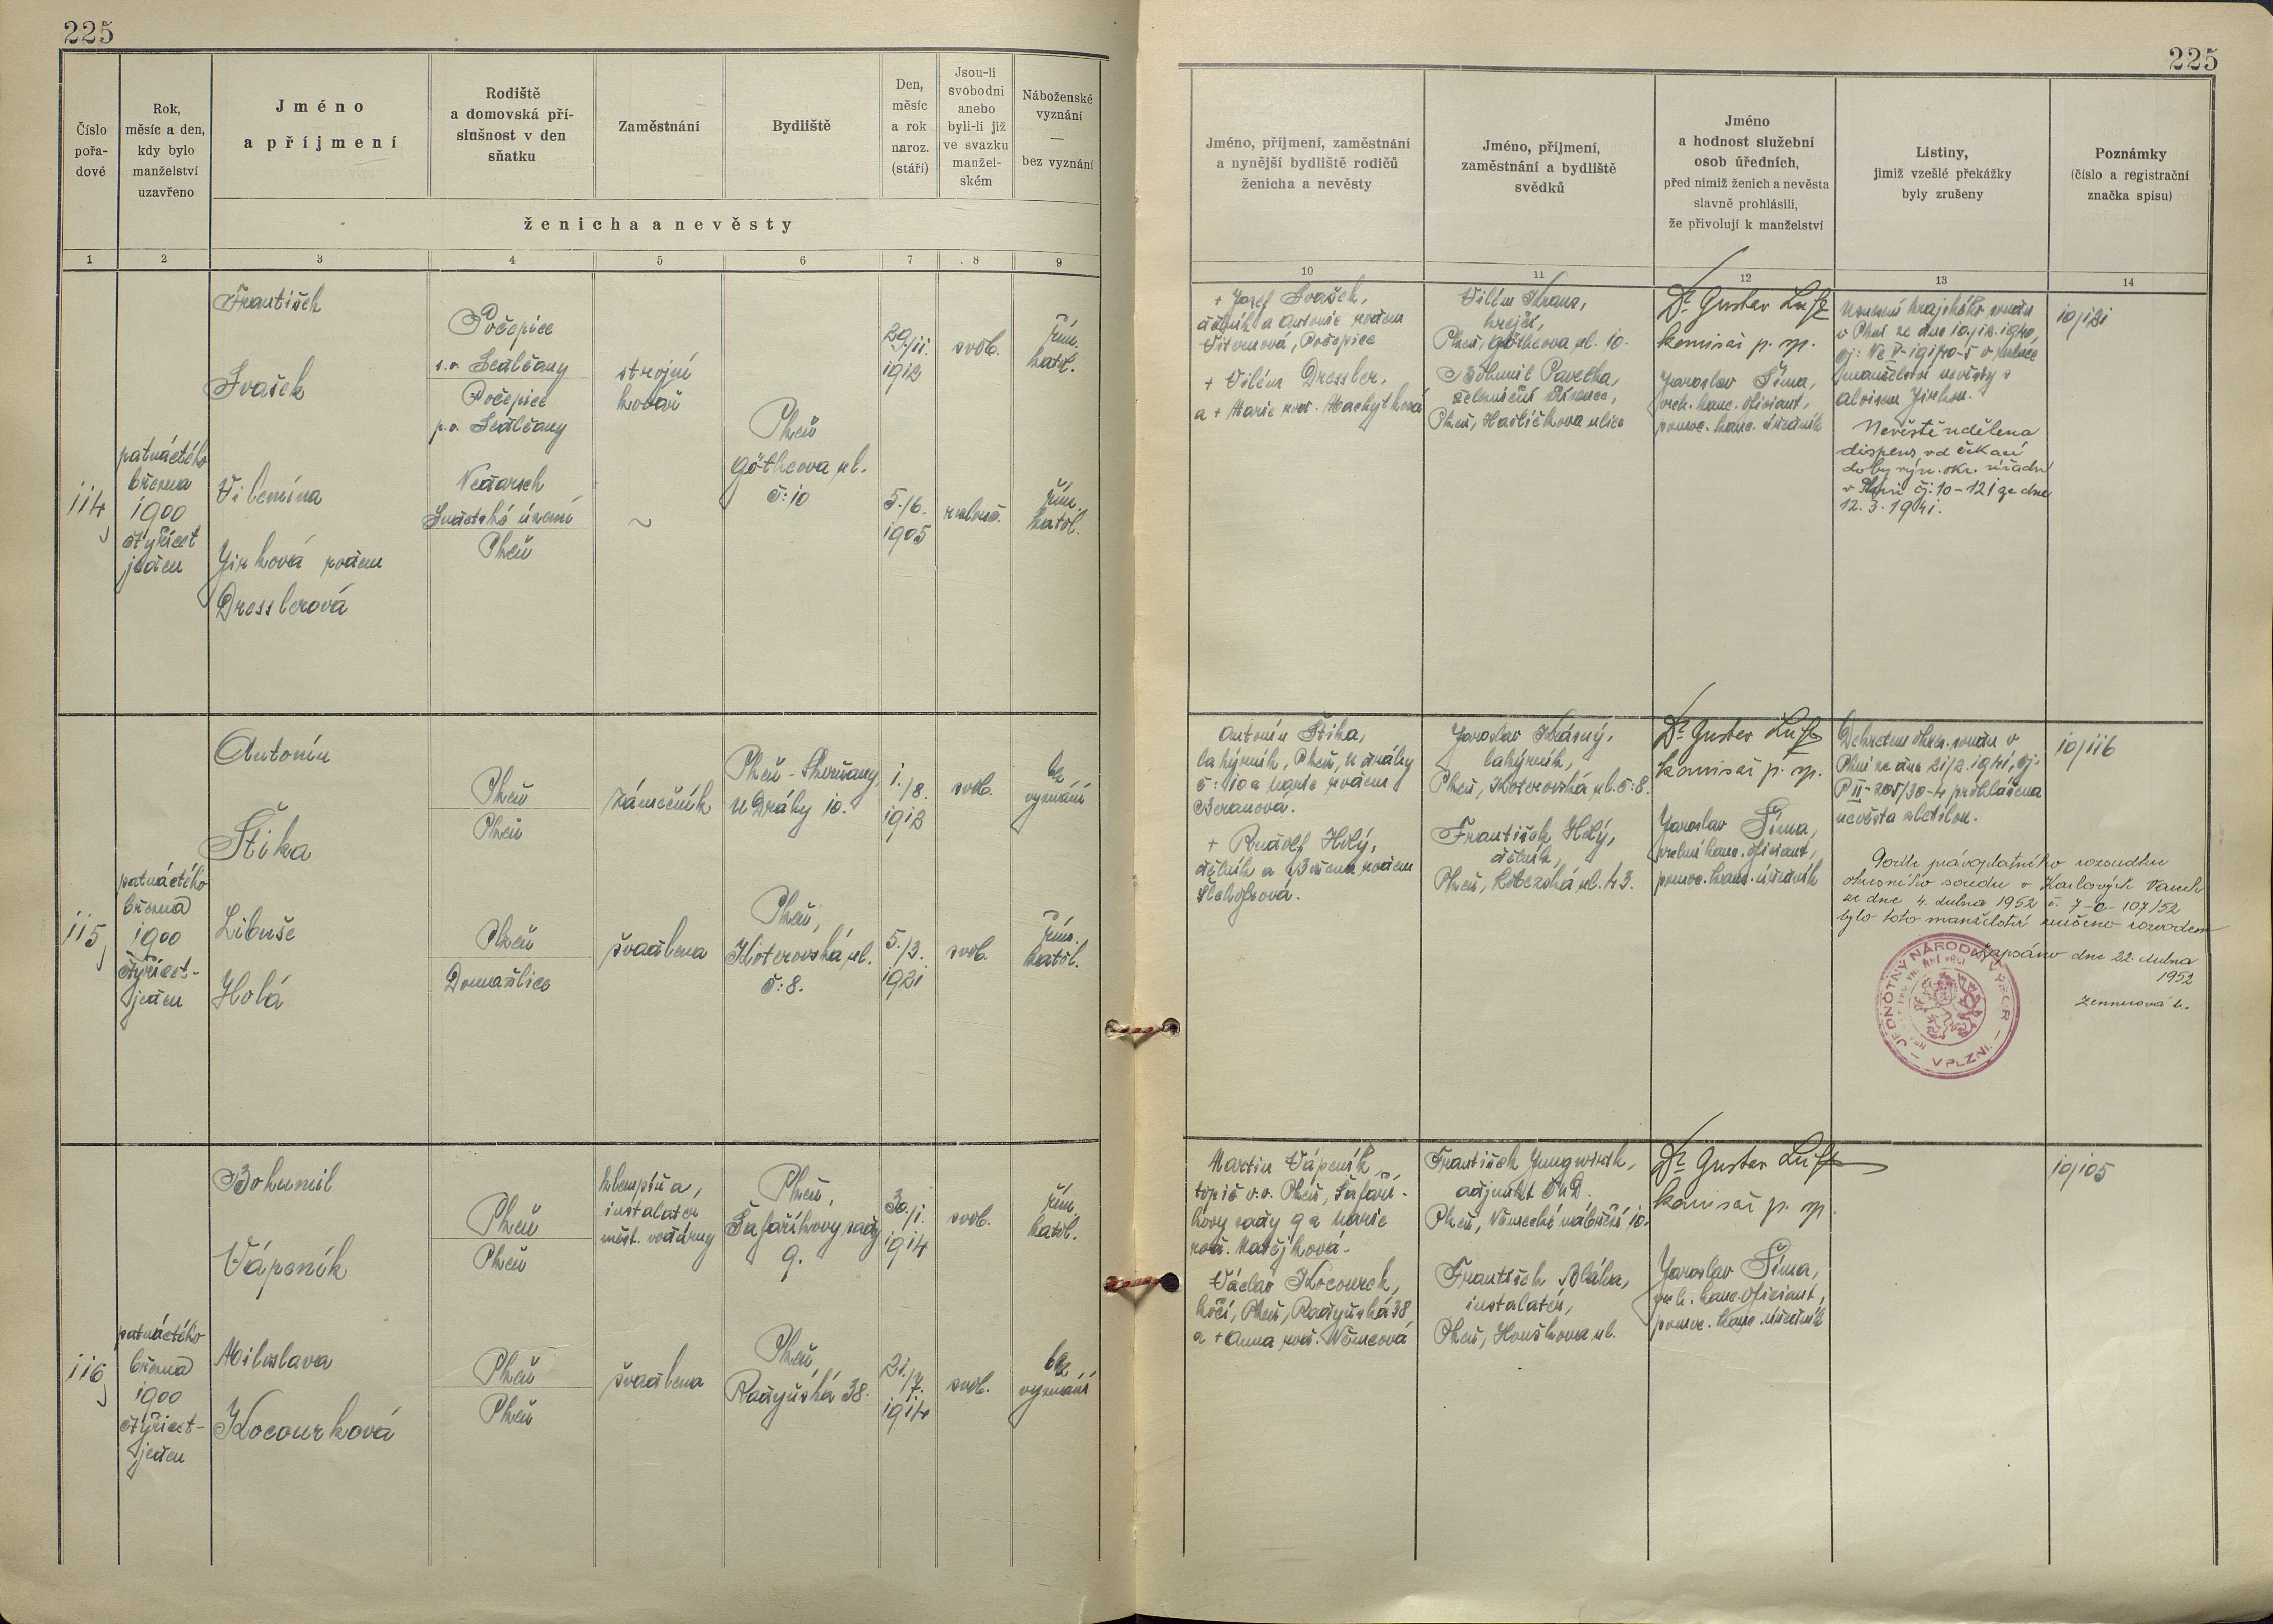 225
225
Číslo pořa- dové
Rok, měsíc a den, kdy bylo manželství uzavřeno
Jméno a příjmení
Rodiště a domovská pří- slušnost v den sňatku
Zaměstnání
Bydliště
Den, měsíc a rok naroz. (stáří)
Jsou-li svobodni anebo byli-li již ve svazku manžel- ském
Náboženské vyznání — bez vyznání
ženicha a nevěsty
1 2 3 4 5 6 7 8 9
Jméno, příjmení, zaměstnání a nynější bydliště rodičů ženicha a nevěsty
Jméno, příjmení, zaměstnání a bydliště svědků
Jméno a hodnost služební osob úředních, před nimiž ženich a nevěsta slavně prohlásili, že přivolují k manželství
Listiny, jimiž vzešlé překážky byly zrušeny
Poznámky (číslo a registrační značka spisu)
10 11 12 13 14
114
patnáctého
března
1900
čtyřicet
jeden
František
Ivašek
Vilemína
Jirková rodem
Dresslerová
Počepice
s.o. Sedlčany
Počepice
p.o. Sedlčany
Sudetské území
Plzeň
strojní
kovář
Plzeň
Götheova ul.
č: 10
29./11.
1912
5./6.
1905
svob.
rozlouč.
řím.
katol.
řím.
katol.
+ Josef Ivašek,
dělník a Antonie rodem
Počepice
+ Vilém Dressler,
a + Marie roz. Machytková
Vilém Kraus,
krejčí,
Plzeň, Götheova ul. 10.
Bohumil Pavelka,
železniční zřízenec,
Plzeň, Havlíčkova ulice
Dr. Gustav Luft
komisař p. sp.
Jaroslav Šíma,
vrch. kanc. oficiant,
pomoc. kanc. úředník
Usnesení krajského soudu
v Plzni ze dne 10./12. 1940,
manželství nevěsty s
Aloisem Jirkou.
Nevěstě udělena
dispens od čekací
doby výn. okr. úřadu
v Plzni čj: 10-121 ze dne
12. 3. 1941.
10/121
115
patnáctého
března
1900
čtyřicet-
jeden
Antonín
Štika
Libuše
Holá
Plzeň
Plzeň
Plzeň
Domažlice
zámečník
švadlena
Plzeň - Skvrňany,
U Dráhy 10.
Plzeň,
Koterovská ul.
č: 8.
1./8.
1912
5./3.
1921
svob.
svob.
bez
vyznání
řím.
katol.
Antonín Štika,
lahýrník, Plzeň, U dráhy
č: 10 a Marie rodem
Beranová.
+ Rudolf Holý,
dělník a Božena rodem
Jaroslav Krásný,
lahýrník,
Plzeň, Koterovská ul. č: 8.
František Holý,
dělník,
Plzeň, Koterovská ul. 43.
Dr. Gustav Luft
komisař p. sp.
Jaroslav Šíma,
vrchní kanc. oficiant,
pomoc. kanc. úředník
Dekretem okres. soudu v
Plzni ze dne 21/2. 1941, čj:
P II-205/30-4 prohlášena
nevěsta zletilou.
Podle právoplatného rozsudku
okresního soudu v Karlových Varech
ze dne 4. dubna 1952 č. 7-C-107/52
bylo toto manželství zrušeno rozvodem
Zapsáno dne 22. dubna
1952
JEDNOTNÝ NÁRODNÍ VÝBOR
V PLZNI
10/116
116
patnáctého
března
1900
čtyřicet-
jeden
Bohumil
Vápeník
Miloslava
Kocourková
Plzeň
Plzeň
Plzeň
Plzeň
klempíř a,
instalater
měst. vodárny
švadlena
Plzeň,
Šafaříkovy sady
9.
Plzeň,
Radyňská 38.
30./1.
1914
21./7.
1914
svob.
svob.
řím.
katol.
bez
vyznání
Martin Vápeník,
topič v.v. Plzeň, Šafaří-
kovy sady 9 a Marie
rod. Matějková.
Václav Kocourek,
kočí, Plzeň, Radyňská 38
a + Anna roz. Němcová
František Jungwirth,
adjunkt ČMD.
Plzeň, Německé nábřeží 10.
František Bláha,
instalatér,
Plzeň, Houškova ul.
Dr. Gustav Luft
komisař p. sp.
Jaroslav Šíma,
vrch. kanc. oficiant,
pomoc. kanc. úředník
10/105